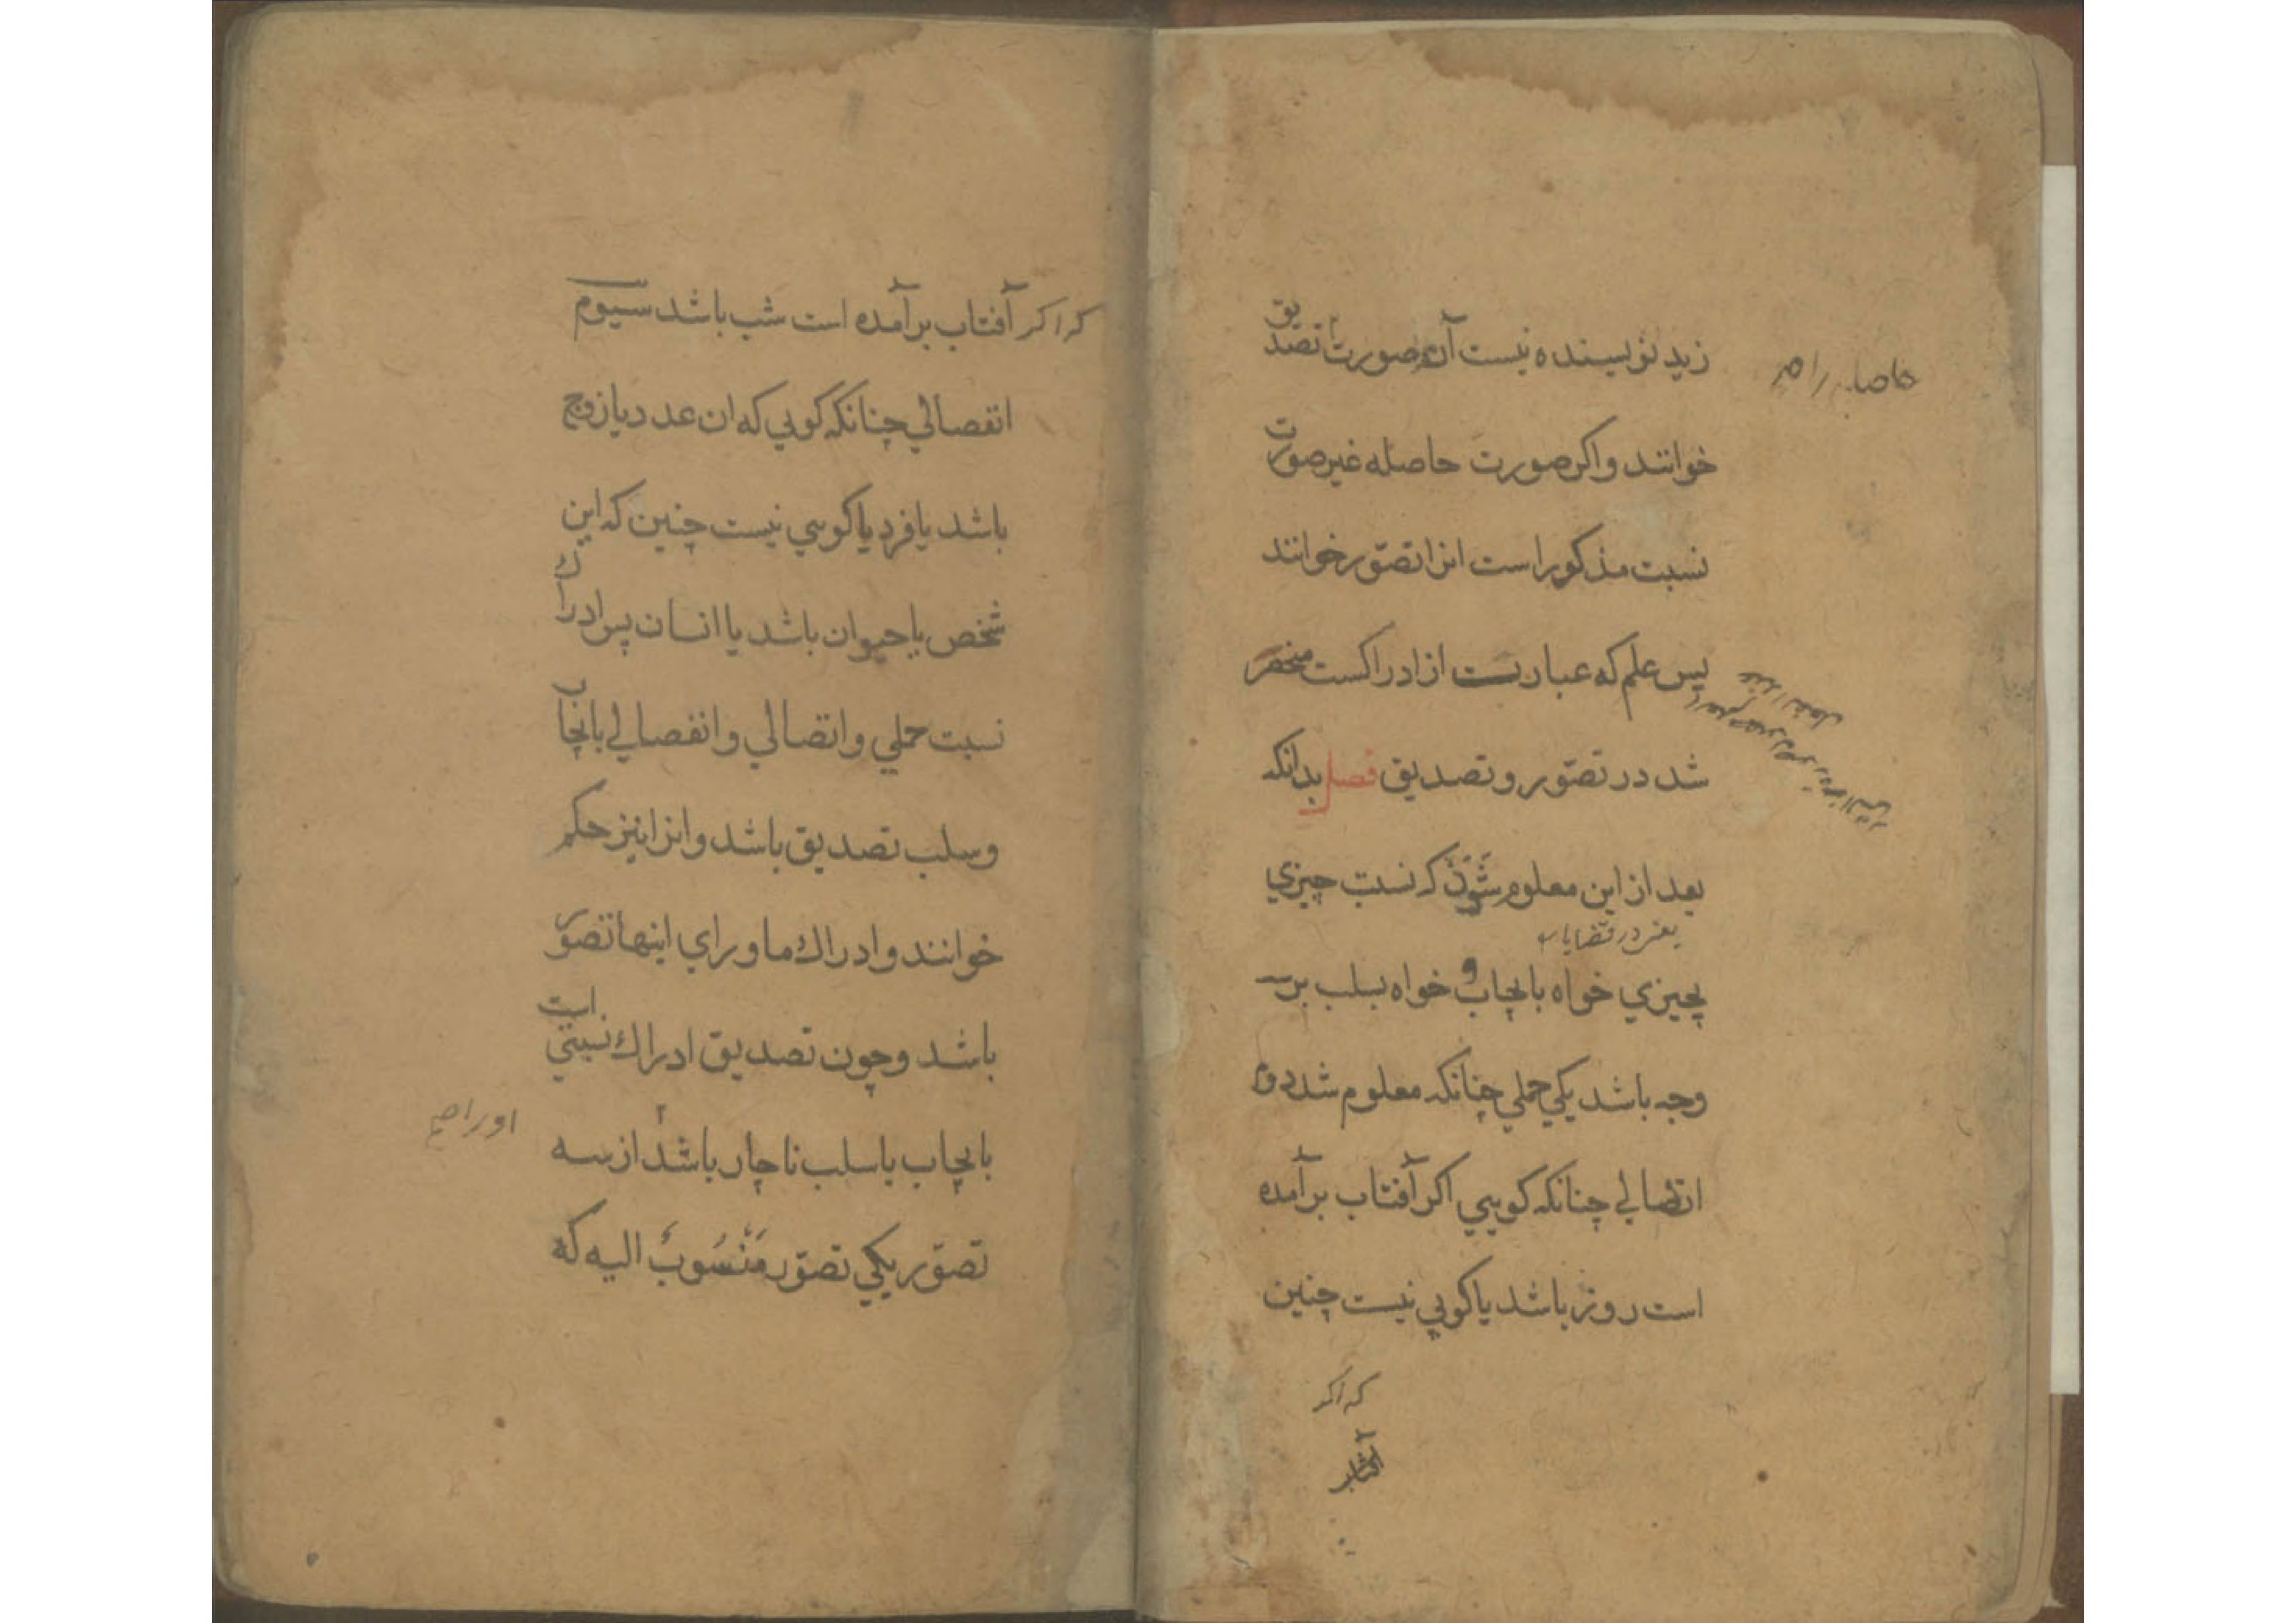 زید نویسنده نیست آن صورت تصدیق
حاصله را صح
خوانند و اکر صورت حاصله غیر صورت
نسبت مذکور است انرا تصوّر خوانند
پس علم که عبارتست از ادراکست منحصر
شد در تصوّر و تصدیق فصل بدانکه
بعد از این معلوم شود که نسبت چیزي
یعنی در قضایا
بچیزي خواه بایجاب و خواه بسلب بر سه
وجه باشد یکي حملي چنانکه معلوم شد دوم
اتصالي چنانکه کویي اکر آفتاب برآمده
است روز باشد یا کویي نیست چنین
که اکر
آفتاب
که اکر آفتاب برآمده است شب باشد سیوم
انفصالي چنانکه کویي که ان عدد یا زوج
باشد یا فرد یا کویي نیست چنین که این
شخص یا حیوان باشد یا انسان پس ادراك
نسبت حملي و اتصالي و انفصالي بایجاب
و سلب تصدیق باشد و انرا نیز حکم
خوانند و ادراك ماوراي اینها تصوّر
باشد و چون تصدیق ادراك نسبتي است
بایجاب یا سلب ناچار باشد از سه
او را صح
تصوّر یکي تصوّر مَنْسُوبٌ الیه که